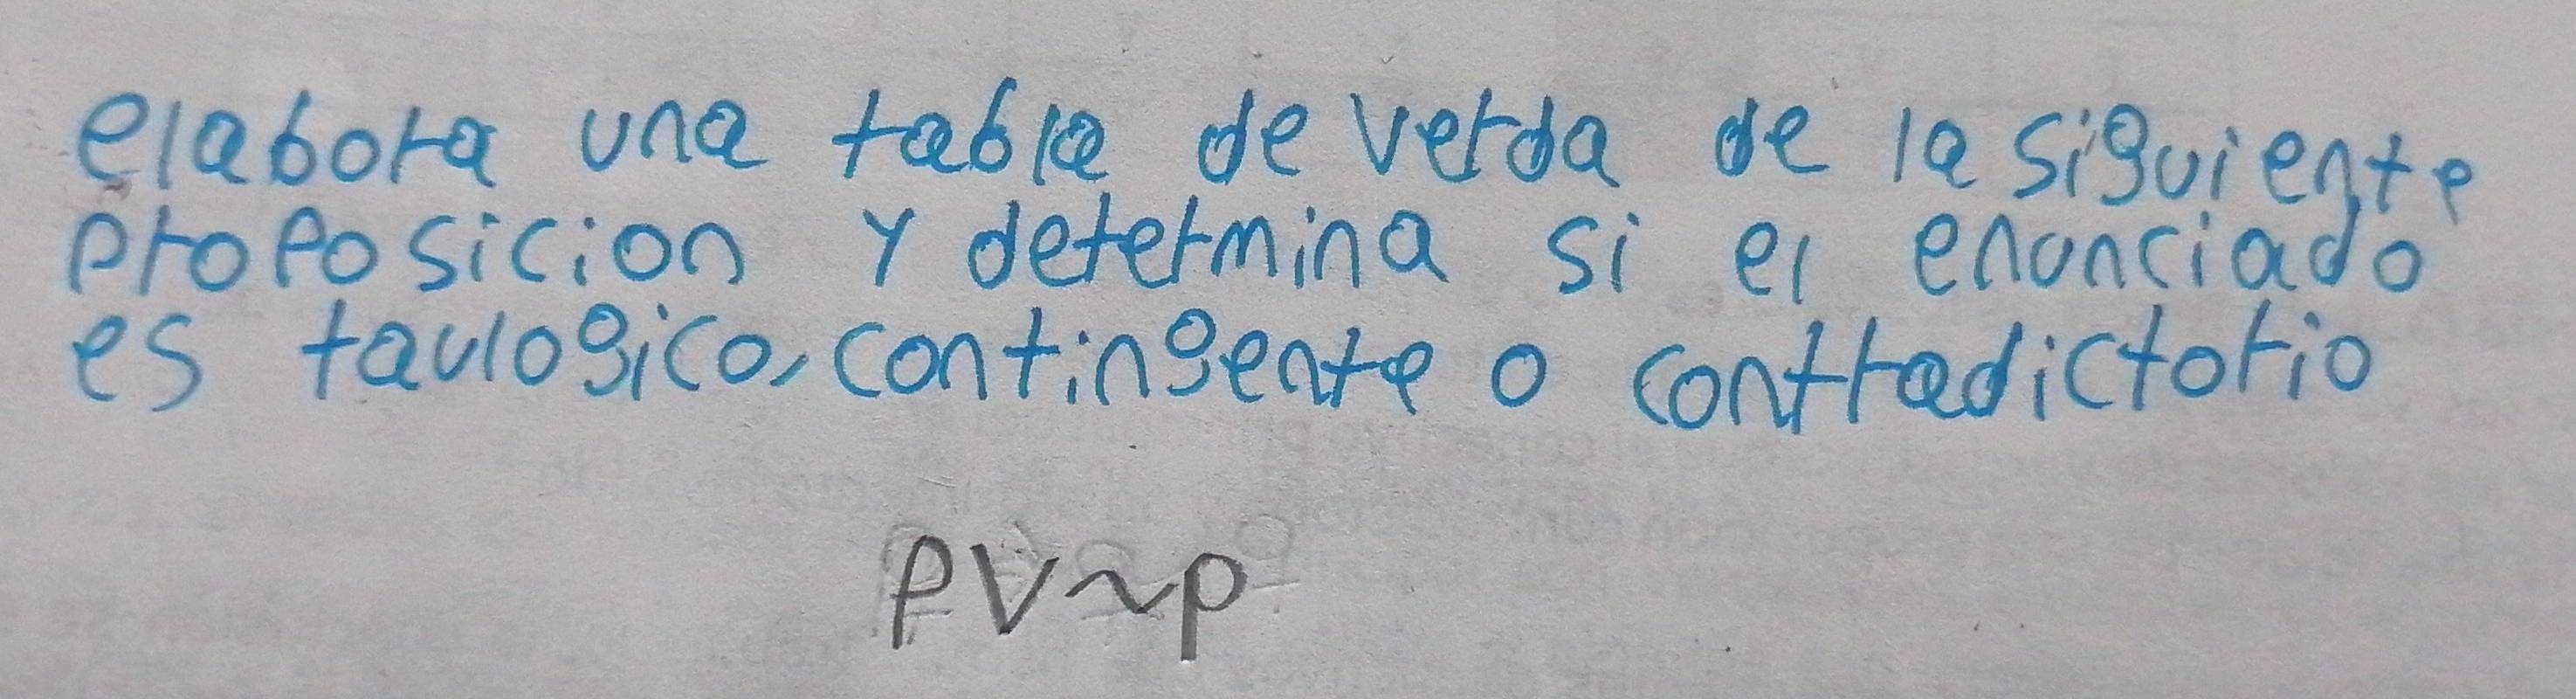 elabora una tabla de verda de la siguiente
proposicion y determina si el enunciado
es taulogico, contingente o contradictorio
p∨~p